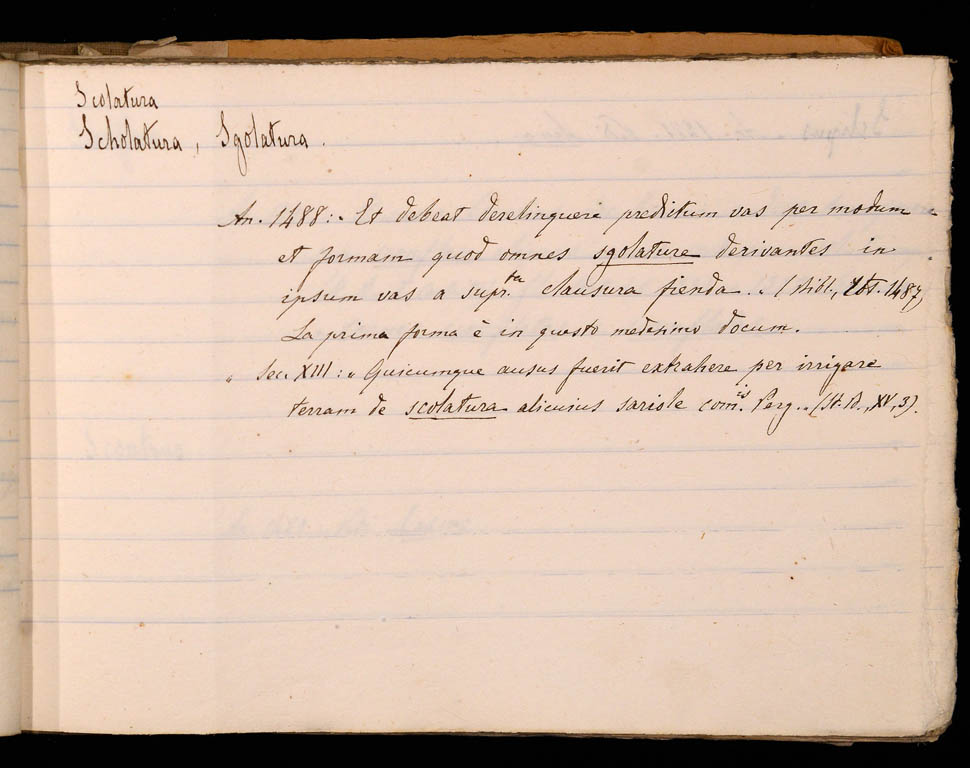 Scolatura
Scholatura, Sgolatura.
An. 1488: „ Et debeat derelinquere predictum vas per modum
et formam quod omnes sgolature derivantes in
ipsum vas a supr.ta clausura fienda „ (Bibl., 1487)
La prima forma è in questo medesimo docum.
„ Sec. XIII: „ Quicumque ausus fuerit extrahere per irrigare
terram de scolatura alicuius sariole com.is Perg. „ (St. B., XV, 3).